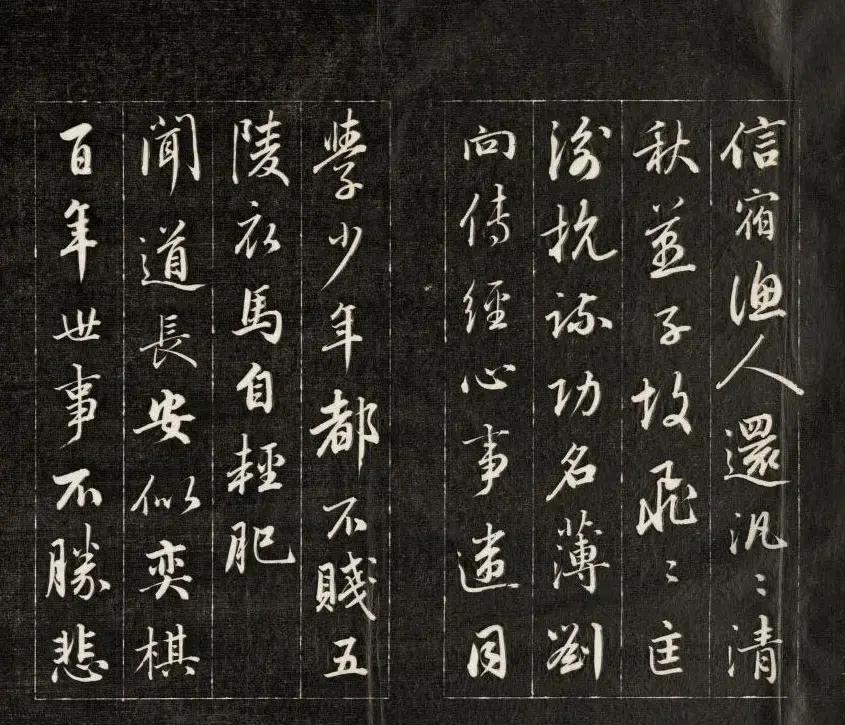 信宿漁人還汎〻清
秋燕子故飛〻匡
衡抗疏功名薄劉
向傳經心事違同
學少年都不賤五
陵衣馬自輕肥
聞道長安似奕棋
百年世事不勝悲